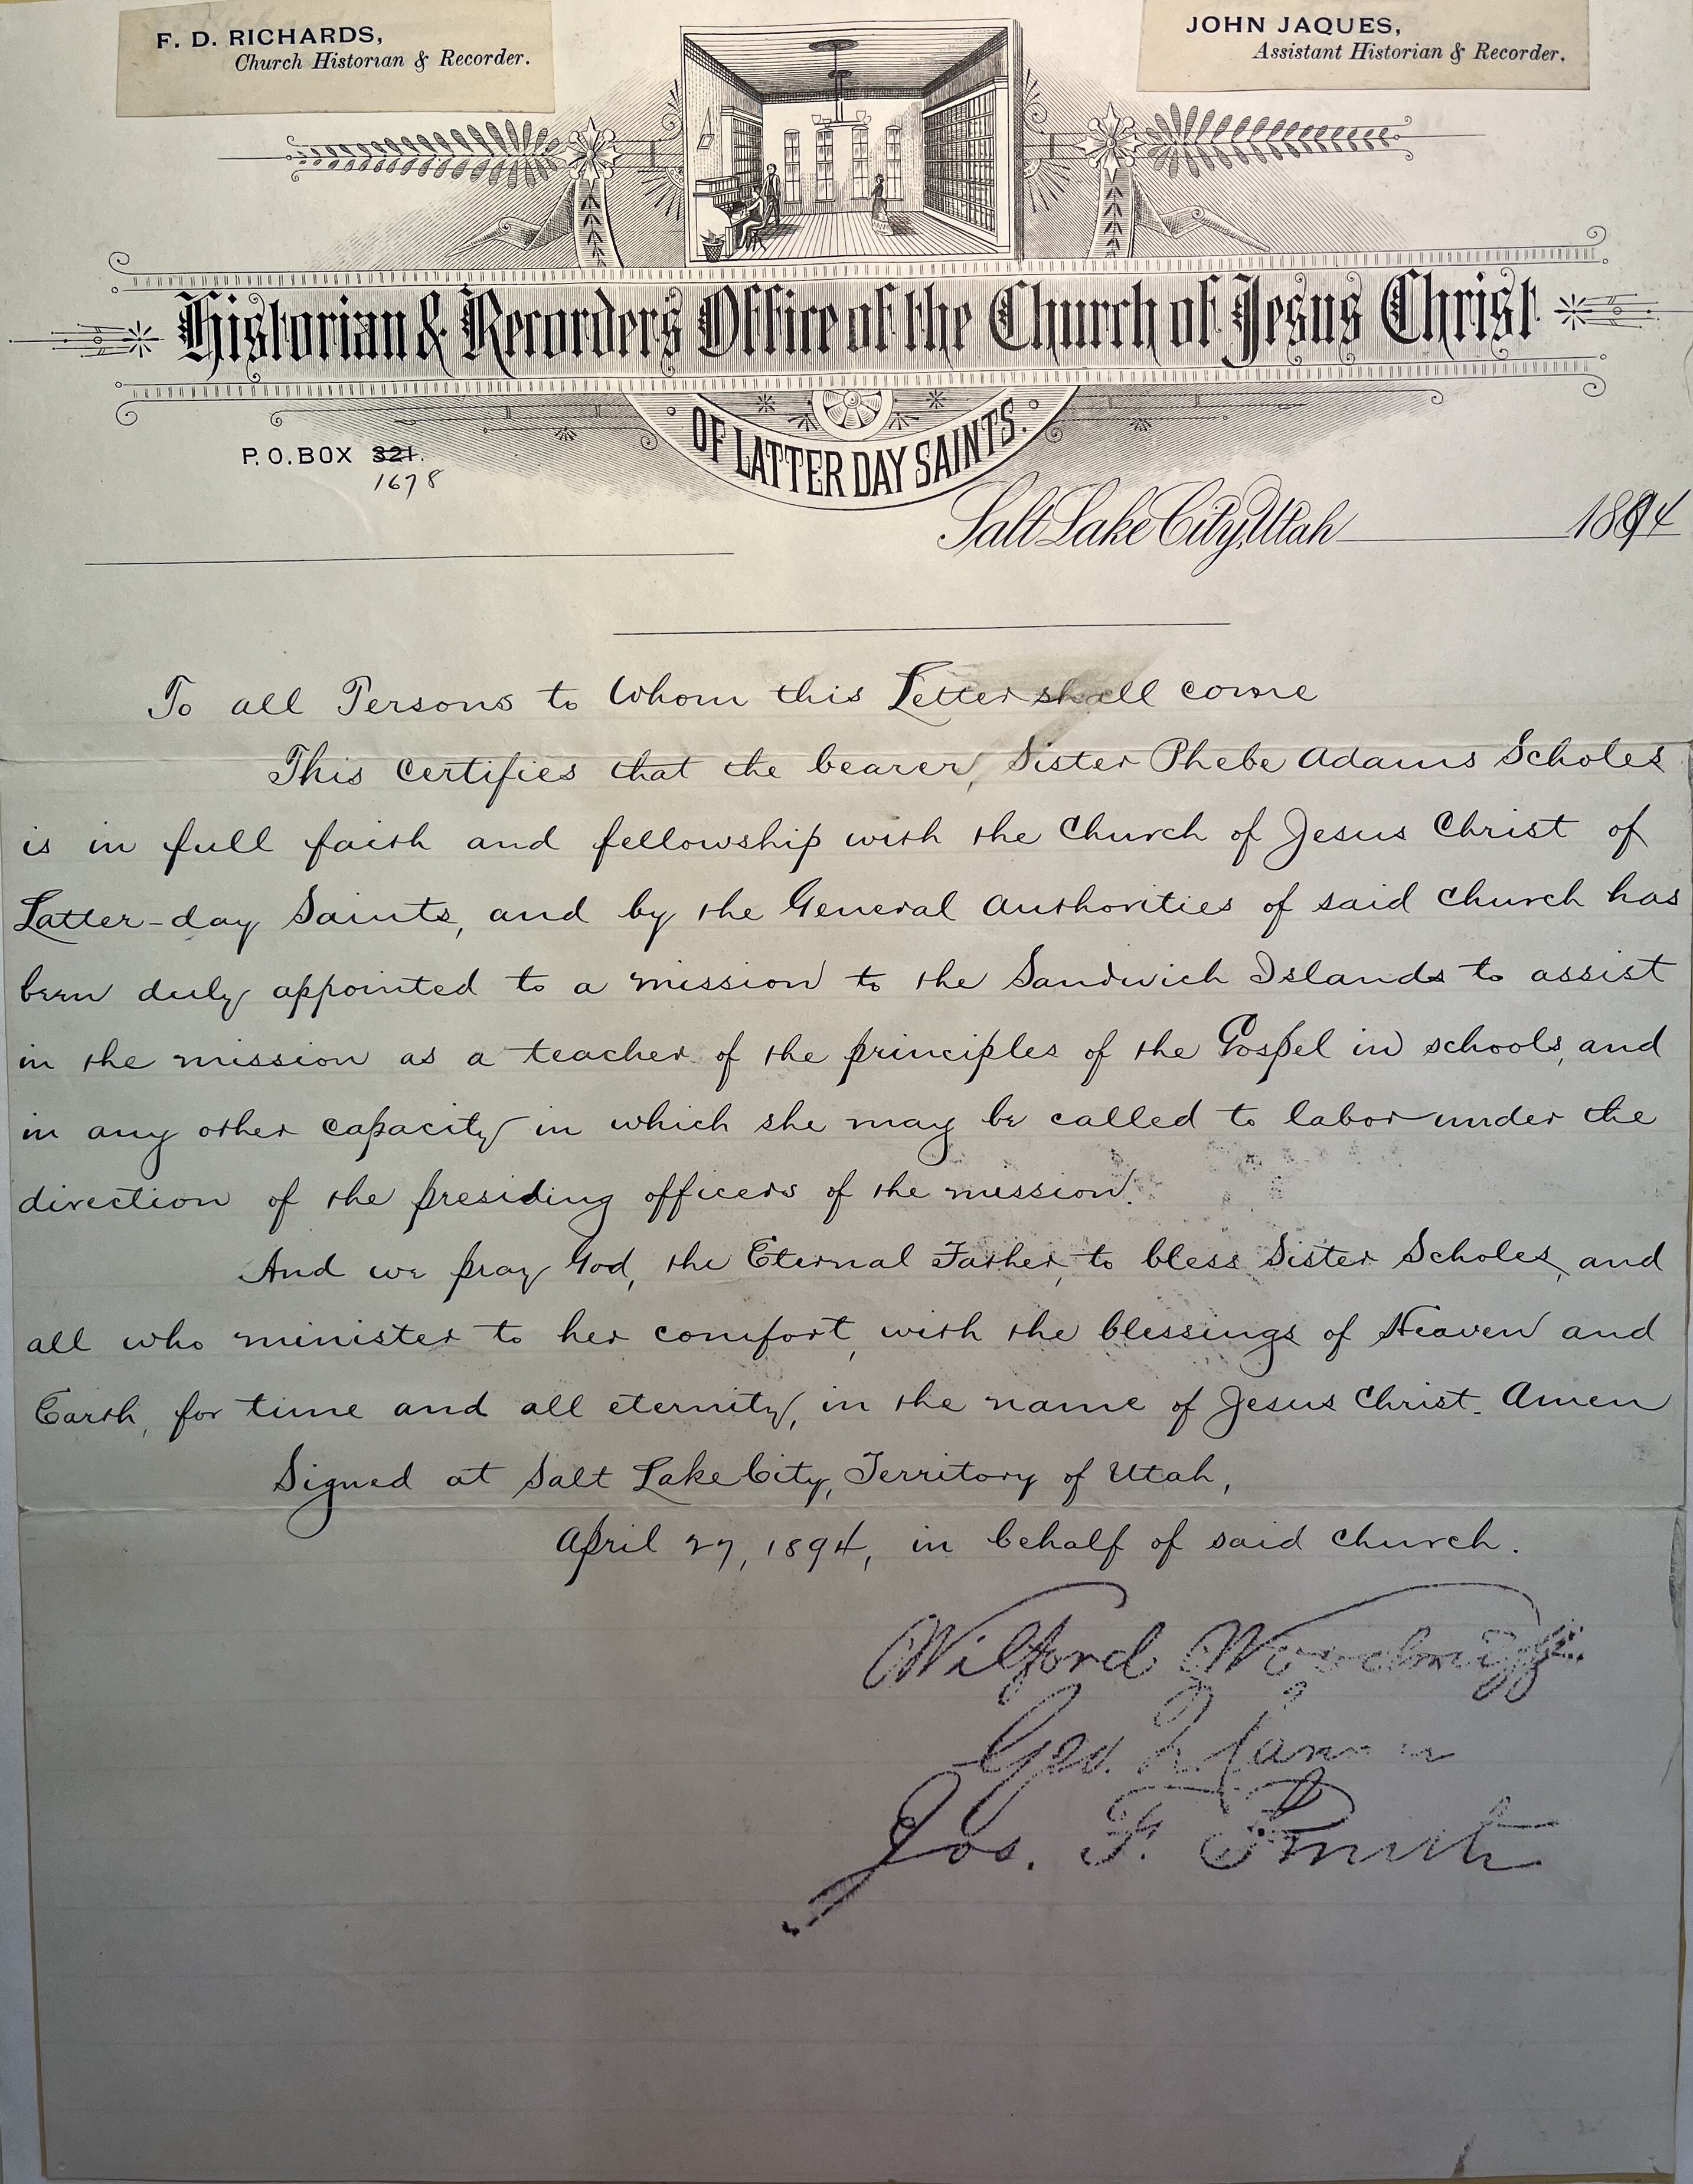 F. D. RICHARDS,
Church Historian & Recorder.
JOHN JAQUES,
Assistant Historian & Recorder.
Historian & Recorder's Office of the Church of Jesus Christ
OF LATTER DAY SAINTS.
P. O. BOX 321.
1678
Salt Lake City, Utah 1894
To all Persons to Whom this Letter shall come
This certifies that the bearer, Sister Phebe Adams Scholes
is in full faith and fellowship with the Church of Jesus Christ of
Latter-day Saints, and by the General Authorities of said church has
been duly appointed to a mission to the Sandwich Islands to assist
in the mission as a teacher of the principles of the Gospel in schools, and
in any other capacity in which she may be called to labor under the
direction of the presiding officers of the mission.
And we pray God, the Eternal Father, to bless Sister Scholes, and
all who minister to her comfort, with the blessings of Heaven and
Earth, for time and all eternity, in the name of Jesus Christ. Amen
Signed at Salt Lake City, Territory of Utah,
April 27, 1894, in behalf of said church.
Wilford Woodruff
Geo. Q. Cannon
Jos. F. Smith